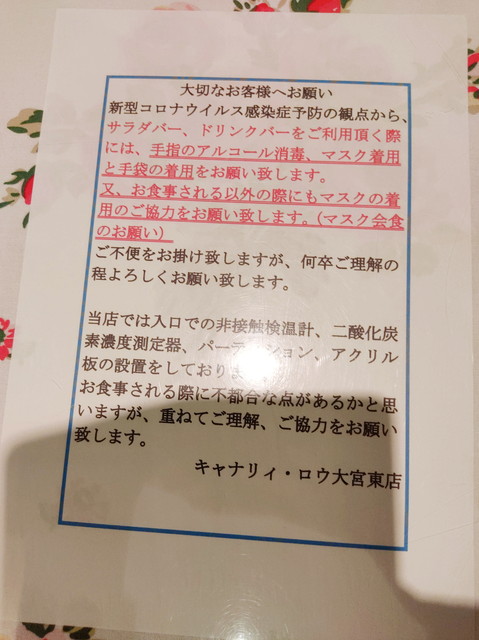 大切なお客様へお願い
新型コロナウイルス感染症予防の観点から、
サラダバー、ドリンクバーをご利用頂く際
には、手指のアルコール消毒、マスク着用
と手袋の着用をお願い致します。
又、お食事される以外の際にもマスクの着
用のご協力をお願い致します。（マスク会食
のお願い）
ご不便をお掛け致しますが、何卒ご理解の
程よろしくお願い致します。
当店では入口での非接触検温計、二酸化炭
素濃度測定器、パーテーション、アクリル
板の設置をしておりま
お食事される際に不都合な点があるかと思
いますが、重ねてご理解、ご協力をお願い
致します。
キャナリィ・ロウ大宮東店